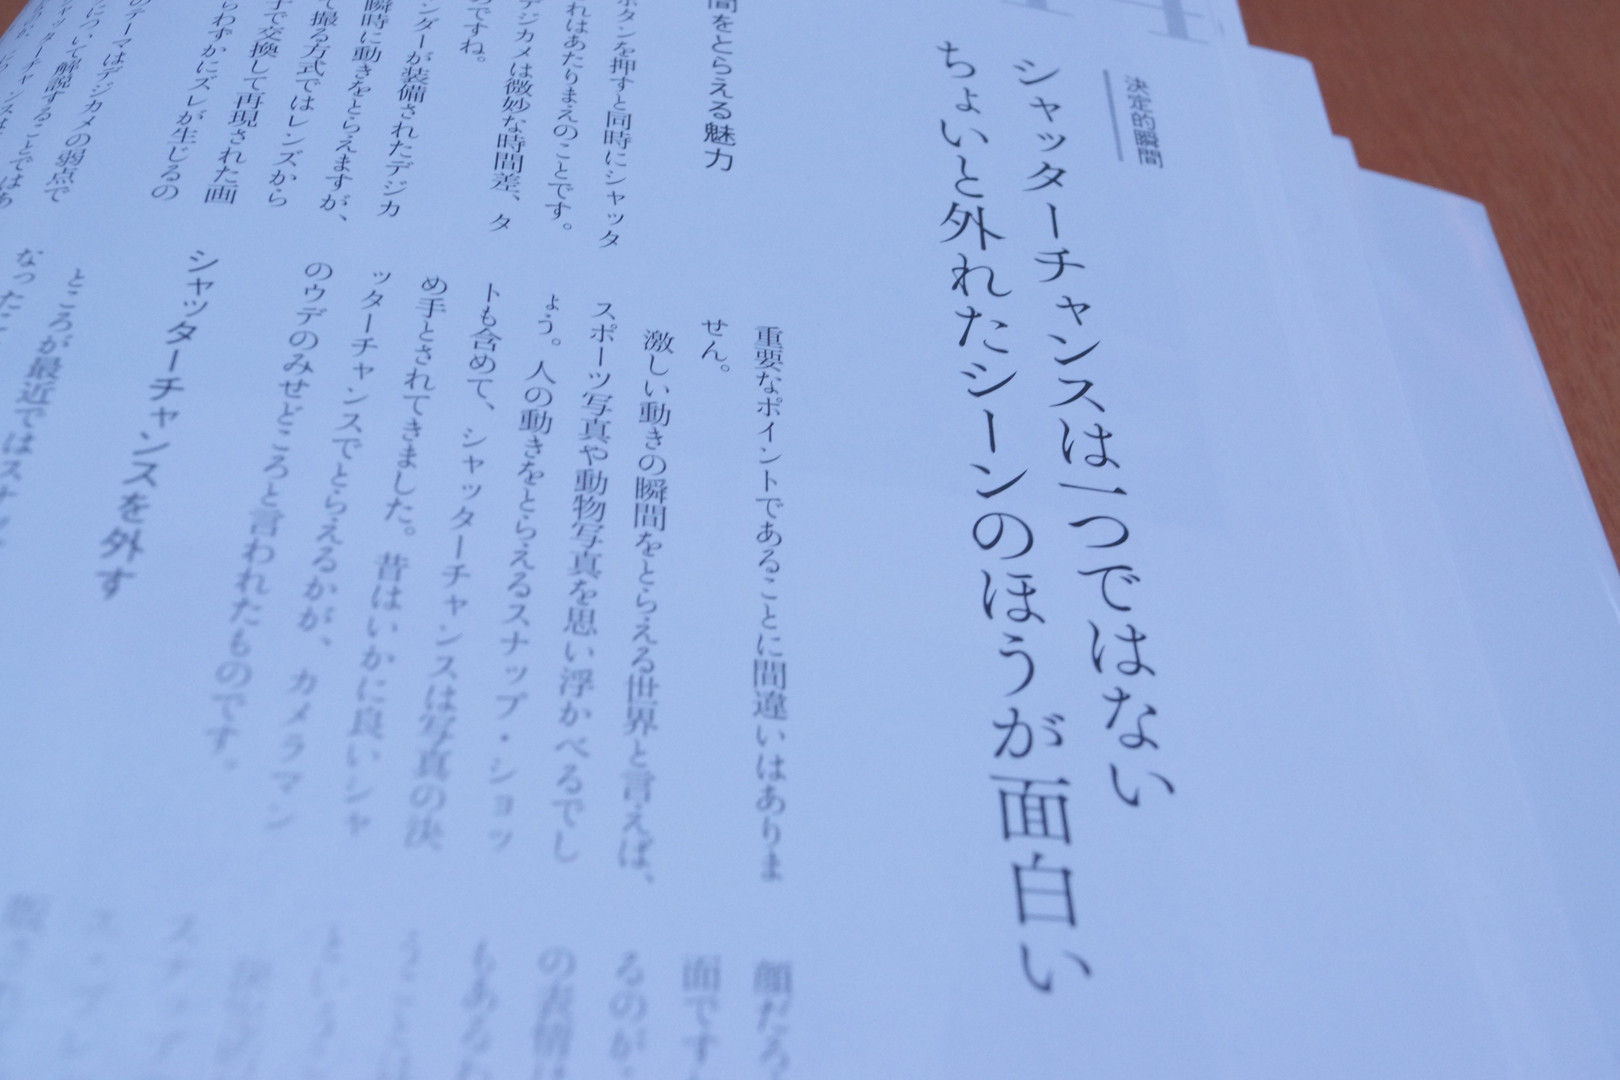 決定的瞬間
シャッターチャンスは一つではない
ちょいと外れたシーンのほうが面白い
間をとらえる魅力
ボタンを押すと同時にシャッタ
れはあたりまえのことです。
デジカメは微妙な時間差、タ
のですね。
ンダーが装備されたデジカ
瞬時に動きをとらえますが、
て撮る方式ではレンズから
子で交換して再現された画
らわずかにズレが生じるの
のテーマはデジカメの弱点で
について解説することではあ
重要なポイントであることに間違いはありま
せん。
激しい動きの瞬間をとらえる世界と言えば、
スポーツ写真や動物写真を思い浮かべるでし
ょう。人の動きをとらえるスナップ・ショッ
トも含めて、シャッターチャンスは写真の決
め手とされてきました。昔はいかに良いシャ
ッターチャンスでとらえるかが、カメラマン
のウデのみせどころと言われたものです。
シャッターチャンスを外す
ところが最近ではスナッ
なった
顔だろ
面です
るのが
の表情は
もあるわ
うことは
という